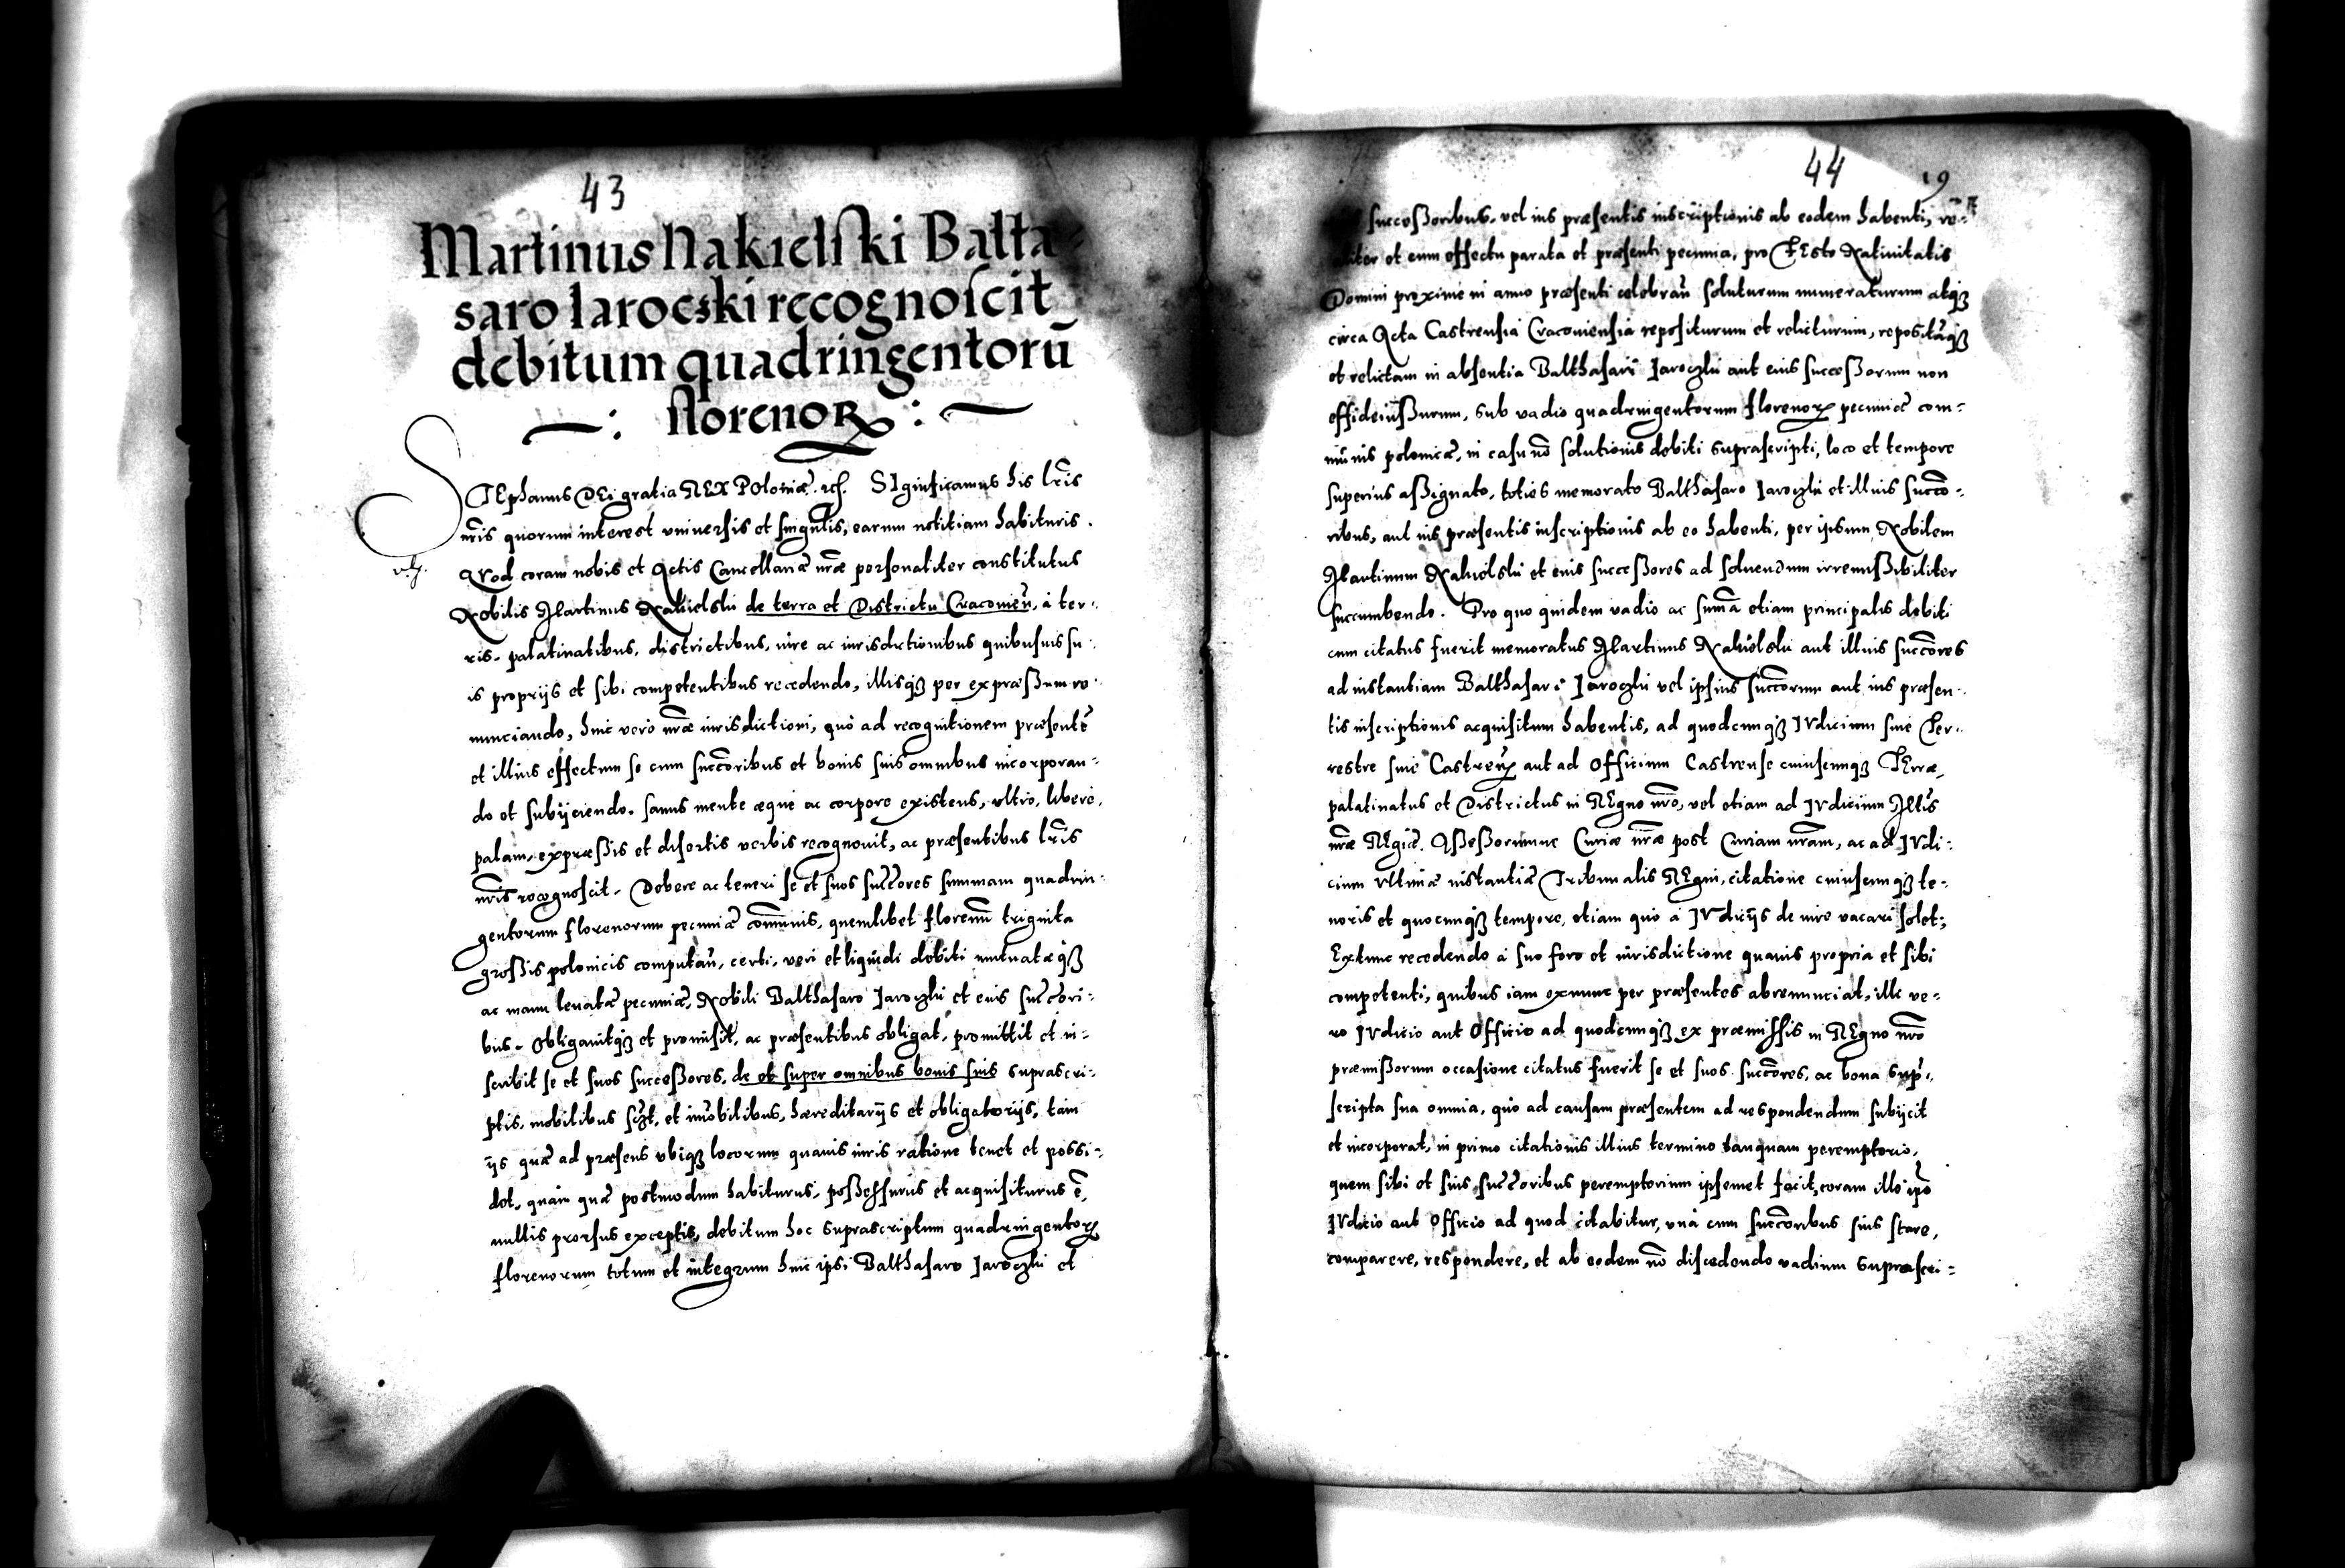 43
Martinus Nakielski Balta-
saro Iaroczki recognoscit
debitum quadringentorū
florenoꝝ
STEphanus DEi gratia REX Poloniæ. etc. SIgnificamus his lr̄is
nr̄is quorum interest vniuersis et singulis, earum notitiam habituris.
QVod coram nobis et Actis Cancellariæ nr̄æ personaliter constitutus
Nobilis Martinus Nakielski de terra et Districtu Cracovieñ, à ter-
ris, palatinatibus, districtibus, iure ac iurisdictionibus quibusuis su-
is proprijs et sibi competentibus recedendo, illisqꝫ per expræssum re-
nunciando, huic verò nr̄æ iurisdictioni, quò ad recognitionem præsentē
et illius effectum se cum succ̄oribus et bonis suis omnibus incorporan-
do et subijciendo. sanus mente æque ac corpore existens, vltro, liberè,
palam, expræssis et disertis verbis recognouit, ac præsentibus lr̄is
nr̄is recognoscit. Debere ac teneri se et suos succ̄ores summam quadrin-
gentorum florenorum pecuniæ com̄unis, quemlibet florenū triginta
grossis polonicis computañ, certi, veri et liquidi debiti mutuatæqꝫ
ac manu leuatæ pecuniæ, Nobili Balthasaro Iaroczki et eius succ̄ori-
bus. Obligauitqꝫ et promisit, ac præsentibus obligat, promittit et in-
scribit se et suos successores, de et super omnibus bonis suis suprascri-
ptis, mobilibus sczt, et imōbilibus, hæreditarijs et obligatorijs, tam
ijs quæ ad præsens vbiqꝫ locorum quauis iuris ratione tenet et possi-
det, quàm quæ postmodum habiturus, possessurus et acquisiturus ē,
nullis prorsus exceptis, debitum hoc suprascriptum quadringentoꝝ
florenorum totum et integrum huic ipsi Balthasaro Iaroczki et
44
19
successoribus, vel ius præsentis inscriptionis ab eodem habenti, re-
aliter et cum effectu parata et præsenti pecunia, pro FEsto Natiuitatis
Domini proxime in anno præsenti celebrañ soluturum numeraturum atqꝫ
circa Acta Castrensia Cracouiensia repositurum et relicturum, repositāqꝫ
et relictam in absentia Balthasari Iaroczki aut eius successorum non
effideiussurum, sub vadio quadringentorum florenoꝝ pecuniæ com-
munis polonicæ, in casu nō solutionis debiti suprascripti, loco et tempore
superius assignato, toties memorato Balthasaro Iaroczki et illius succ̄o-
ribus, aut ius præsentis inscriptionis ab eo habenti, per ipsum Nobilem
Martinum Nakielski et eius successores ad soluendum irremissibiliter
succumbendo. Pro quo quidem vadio ac sum̄a etiam principalis debiti
cum citatus fuerit memoratus Martinus Nakielski aut illius succ̄ores
ad instantiam Balthasari Iaroczki vel ipsius succ̄orum aut ius præsen-
tis inscriptionis acquisitum habentis, ad quodcunqꝫ IVdicium siue Ter-
restre siue Castreñ aut ad Officium Castrense cuiuscunqꝫ TErræ,
palatinatus et Districtus in REgno nr̄o, vel etiam ad IVdicium Mttis
nr̄æ REgiæ. Assessorumue Curiæ nr̄æ post Curiam nr̄am, ac ad IVdi-
cium vltimæ instantiæ Tribunalis REgni, citatione cuiuscunqꝫ te-
noris et quocunqꝫ tempore, etiam quò à IVdicijs de iure vacari solet;
Extunc recedendo à suo foro et iurisdictione quauis propria et sibi
competenti, quibus iam exnunc per præsentes abrenunciat, illi ve-
ro IVdicio aut Officio ad quodcunqꝫ ex præmissis in REgno nr̄o
præmissorum occasione citatus fuerit se et suos succ̄ores, ac bona supr̄a-
scripta sua omnia, quò ad causam præsentem ad respondendum subijcit
et incorporat, in primo citationis illius termino tanquam peremptorio,
quem sibi et suis succ̄oribus peremptorium ipsemet facit, coram illo ip̄o
IVdicio aut Officio ad quod citabitur, vnà cum succ̄oribus suis stare,
comparere, respondere, et ab eodem nō discedendo vadium suprascri-